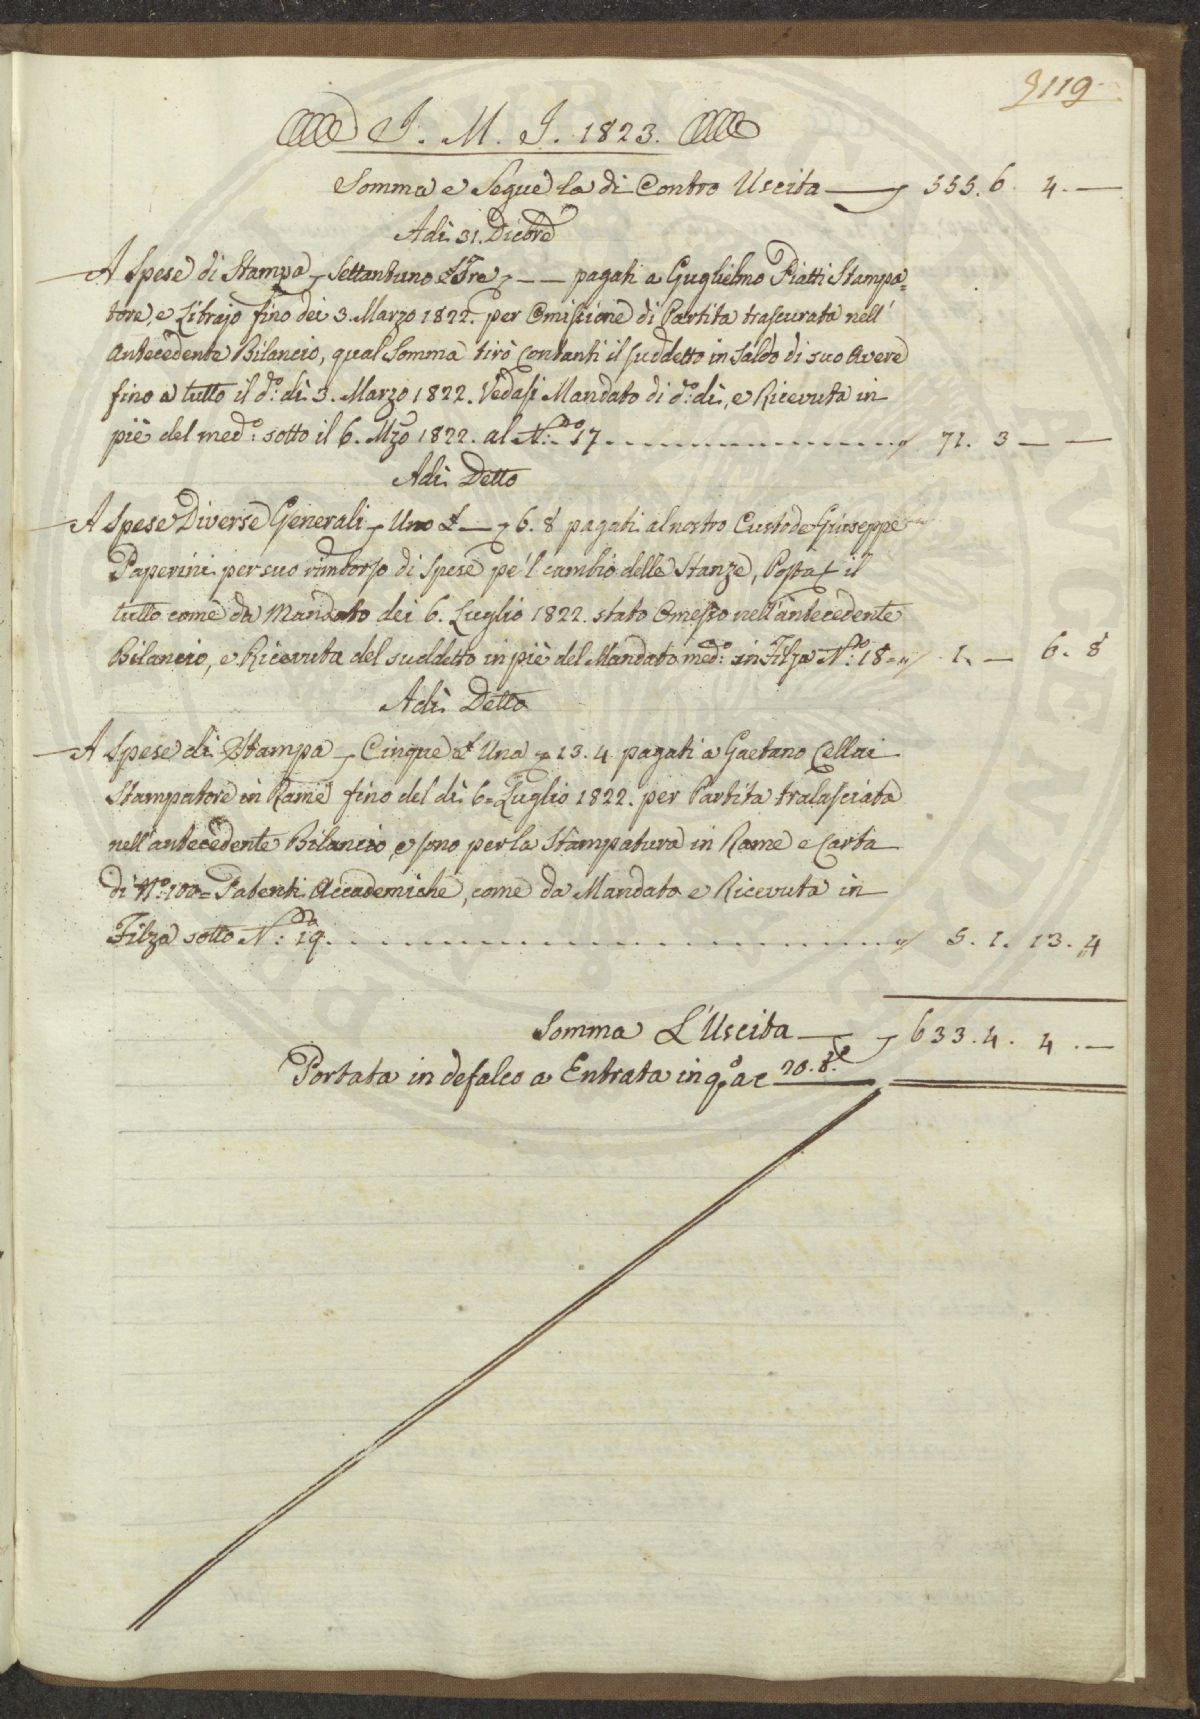 119
J. M. J. 1823.
Somma e Segue la di Contro Uscita 555. 6. 4. —
Adì 31. Dicbre
A Spese di Stampa Settantuno £ Tre — — pagati a Guglielmo Piatti Stampa=
tore, e Librajo fino dei 3. Marzo 1822. per Omissione di Partita trascurata nell'
antecedente Bilancio, qual Somma tirò Contanti il suddetto in Saldo di suo Avere
fino a tutto il do: dì 3. Marzo 1822. Vedasi Mandato di do: dì, e Ricevuta in
piè del medo: sotto il 6. Mzo 1822. al No: 17 71. 3 — —
Adì Detto
A Spese Diverse Generali Uno £ — 6. 8 pagati al nostro Custode Giuseppe
Paperini per suo rimborso di Spese pe'l cambio delle Stanze, Posta il
tutto come da Mandato dei 6. Luglio 1822. stato Omesso nell'antecedente
Bilancio, e Ricevuta del suddetto in piè del Mandato medo: in Filza No: 18= 1. — 6. 8
Adì Detto
A Spese di Stampa Cinque £ Una 13. 4. pagati a Gaetano Cellai
Stampatore in Rame fino del dì 6= Luglio 1822. per Partita tralasciata
nell'antecedente Bilancio, e sono per la Stampatura in Rame e Carta
di No: 100= Patenti Accademiche, come da Mandato e Ricevuta in
Filza sotto No: 19. 5. 1. 13. 4
Somma L'Uscita 633. 4. 4. —
Portata in defalco a Entrata in qo. a c 20. 8.